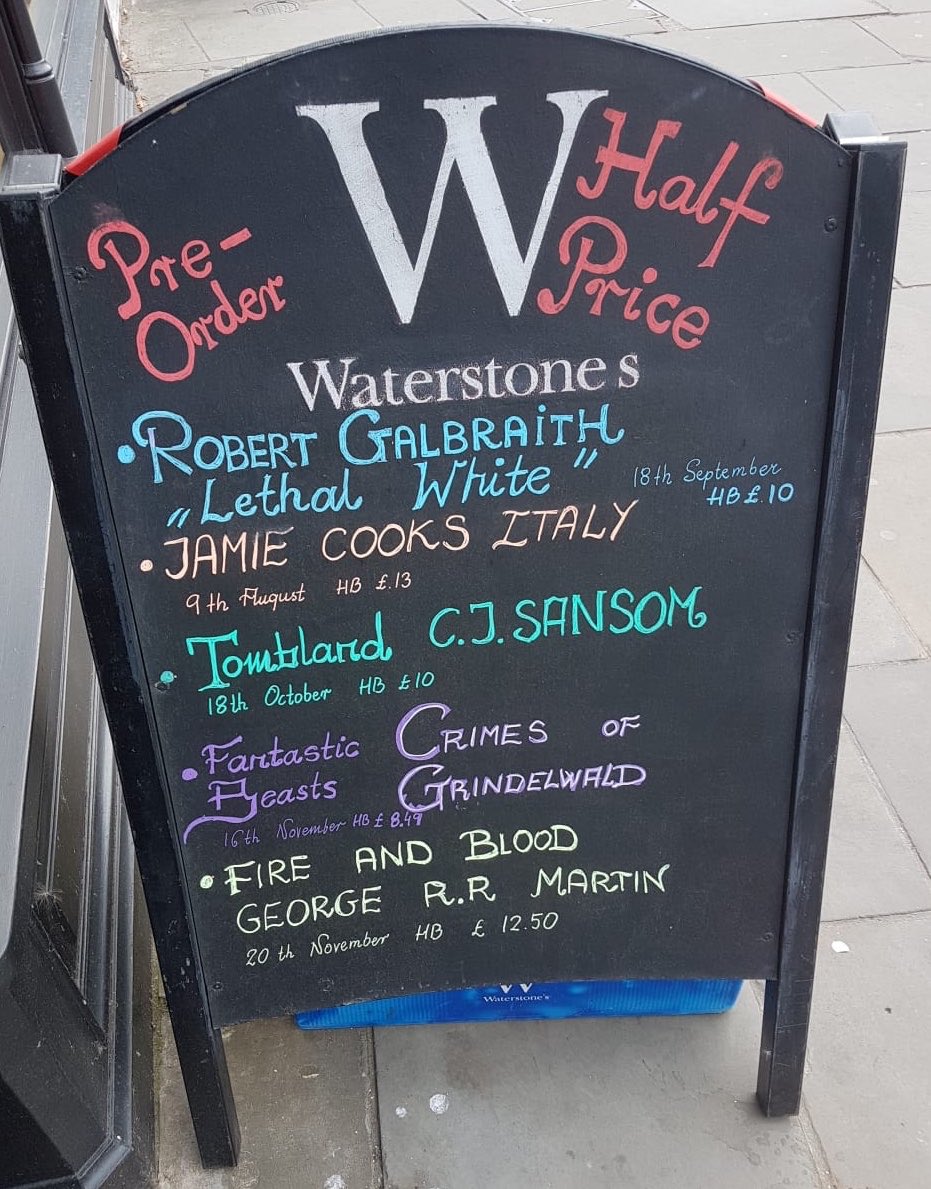 Pre-
Order
W
Half
Price
Waterstone's
• ROBERT GALBRAITH
„Lethal White”
18th September
HB £10
• JAMIE COOKS ITALY
9th August HB £13
• Tombland C.J. SANSOM
18th October HB £10
• Fantastic CRIMES OF
Beasts GRINDELWALD
16th November HB £ 8.49
• FIRE AND BLOOD
GEORGE R.R MARTIN
20th November HB £ 12.50
W
Waterstone's